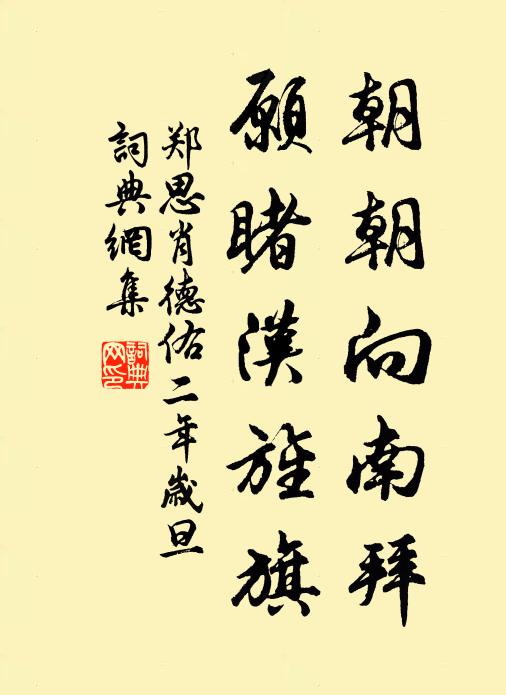 朝朝向南拜
願睹漢旌旗
郑思肖德佑二年歲旦
詞典網集
詞典网印